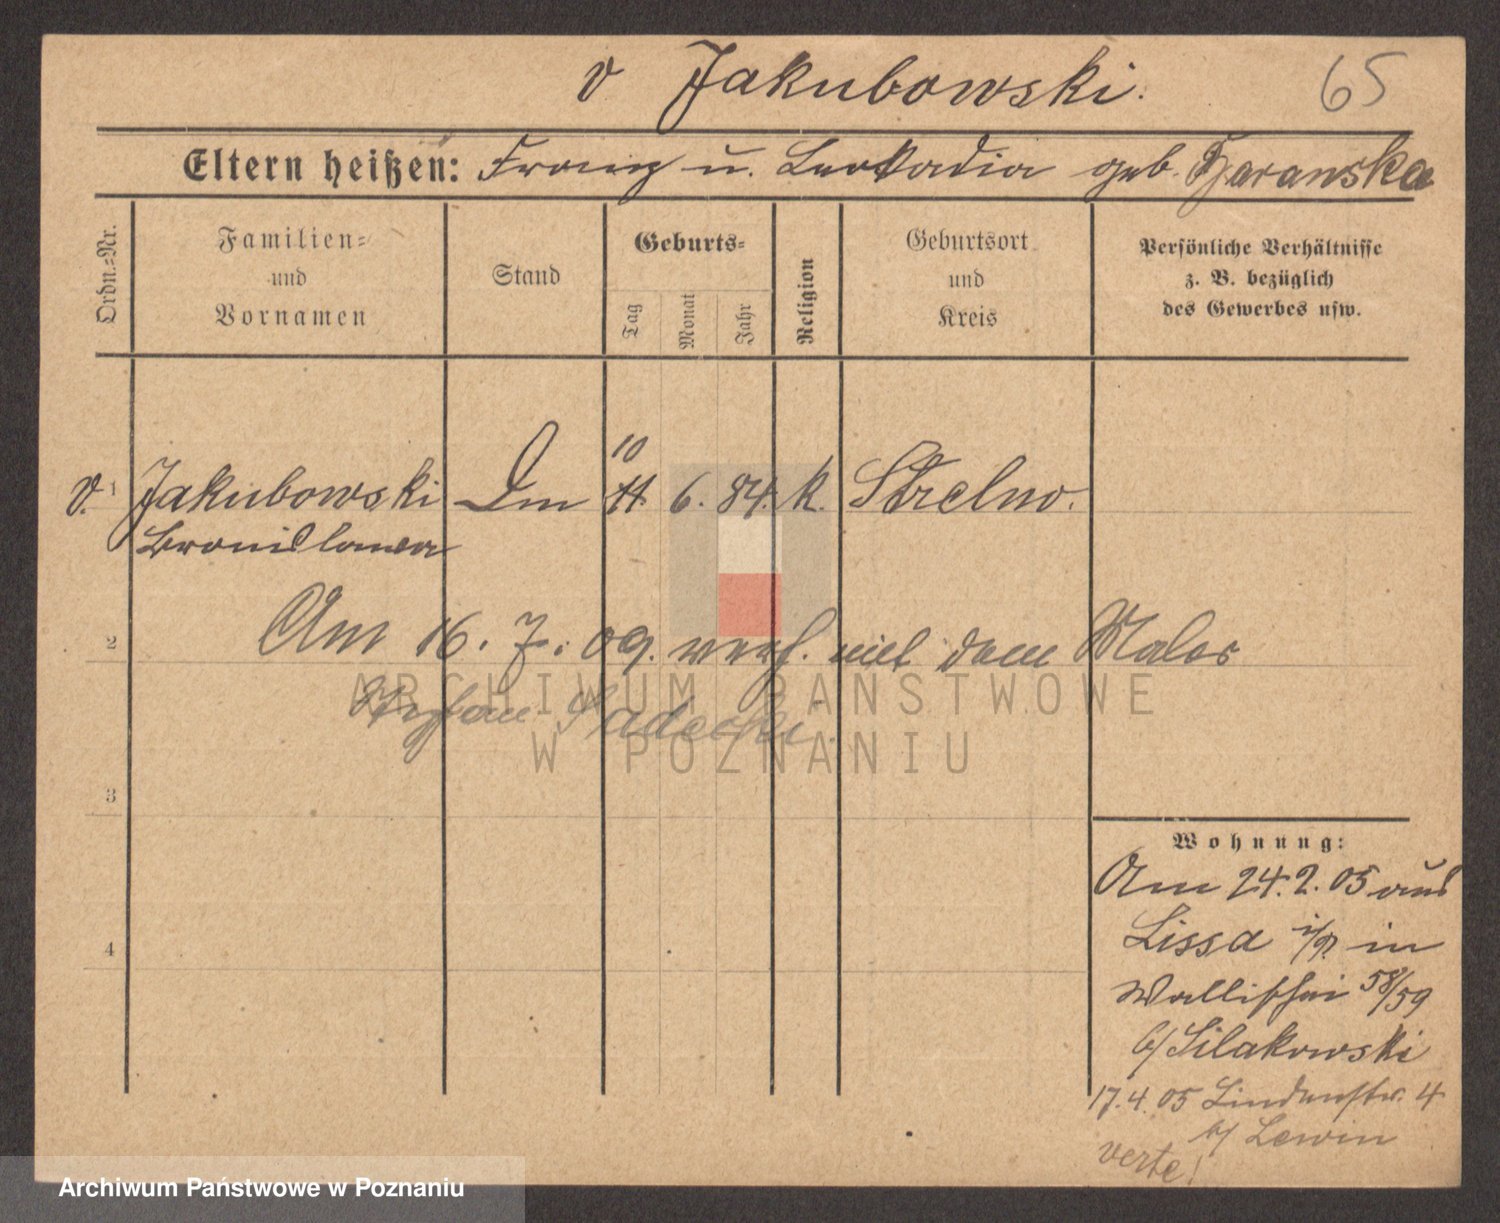 v Jakubowski. 65
Eltern heißen: Franz u. Leokadia geb.
Ordn.=Nr.
Familien=
und
Vornamen
Stand
Geburts=
Tag
Monat
Jahr
Religion
Geburtsort
und
Kreis
Persönliche Verhältnisse
z. B. bezüglich
des Gewerbes usw.
v. 1 Jakubowski Dm 11. 6. 84. k. Strelno.
10
Bronislawa
2 Am 16. 7. 09. verh. mit dem Maler
Stefan Sadecki.
3
4
Wohnung:
Am 24. 2. 05 aus
Lissa i/P. in
Wallischei 58/59
b/ Silakowski
17. 4. 05 Lindenstr. 4
b/ Lewin
verte!
ARCHIWUM PAŃSTWOWE
W POZNANIU
Archiwum Państwowe w Poznaniu